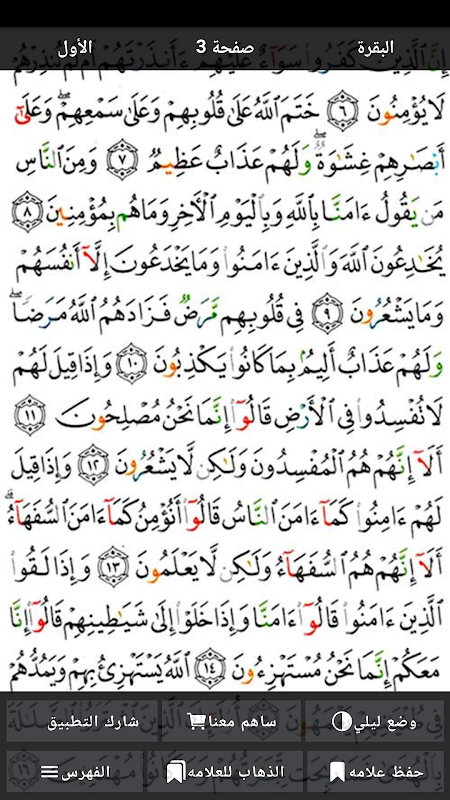 البقرة صفحة 3 الأول
إِنَّ ٱلَّذِينَ كَفَرُوا۟ سَوَآءٌ عَلَيْهِمْ ءَأَنذَرْتَهُمْ أَمْ لَمْ تُنذِرْهُمْ
لَا يُؤْمِنُونَ ٦ خَتَمَ ٱللَّهُ عَلَىٰ قُلُوبِهِمْ وَعَلَىٰ سَمْعِهِمْ ۖ وَعَلَىٰٓ
أَبْصَـٰرِهِمْ غِشَـٰوَةٌ ۖ وَلَهُمْ عَذَابٌ عَظِيمٌ ٧ وَمِنَ ٱلنَّاسِ
مَن يَقُولُ ءَامَنَّا بِٱللَّهِ وَبِٱلْيَوْمِ ٱلْـَٔاخِرِ وَمَا هُم بِمُؤْمِنِينَ ٨
يُخَـٰدِعُونَ ٱللَّهَ وَٱلَّذِينَ ءَامَنُوا۟ وَمَا يَخْدَعُونَ إِلَّآ أَنفُسَهُمْ
وَمَا يَشْعُرُونَ ٩ فِى قُلُوبِهِم مَّرَضٌ فَزَادَهُمُ ٱللَّهُ مَرَضًا ۖ
وَلَهُمْ عَذَابٌ أَلِيمٌۢ بِمَا كَانُوا۟ يَكْذِبُونَ ١٠ وَإِذَا قِيلَ لَهُمْ
لَا تُفْسِدُوا۟ فِى ٱلْأَرْضِ قَالُوٓا۟ إِنَّمَا نَحْنُ مُصْلِحُونَ ١١
أَلَآ إِنَّهُمْ هُمُ ٱلْمُفْسِدُونَ وَلَـٰكِن لَّا يَشْعُرُونَ ١٢ وَإِذَا قِيلَ
لَهُمْ ءَامِنُوا۟ كَمَآ ءَامَنَ ٱلنَّاسُ قَالُوٓا۟ أَنُؤْمِنُ كَمَآ ءَامَنَ ٱلسُّفَهَآءُ ۗ
أَلَآ إِنَّهُمْ هُمُ ٱلسُّفَهَآءُ وَلَـٰكِن لَّا يَعْلَمُونَ ١٣ وَإِذَا لَقُوا۟
ٱلَّذِينَ ءَامَنُوا۟ قَالُوٓا۟ ءَامَنَّا وَإِذَا خَلَوْا۟ إِلَىٰ شَيَـٰطِينِهِمْ قَالُوٓا۟ إِنَّا
مَعَكُمْ إِنَّمَا نَحْنُ مُسْتَهْزِءُونَ ١٤ ٱللَّهُ يَسْتَهْزِئُ بِهِمْ وَيَمُدُّهُمْ
وضع ليلي ساهم معنا شارك التطبيق
حفظ علامه الذهاب للعلامه الفهرس